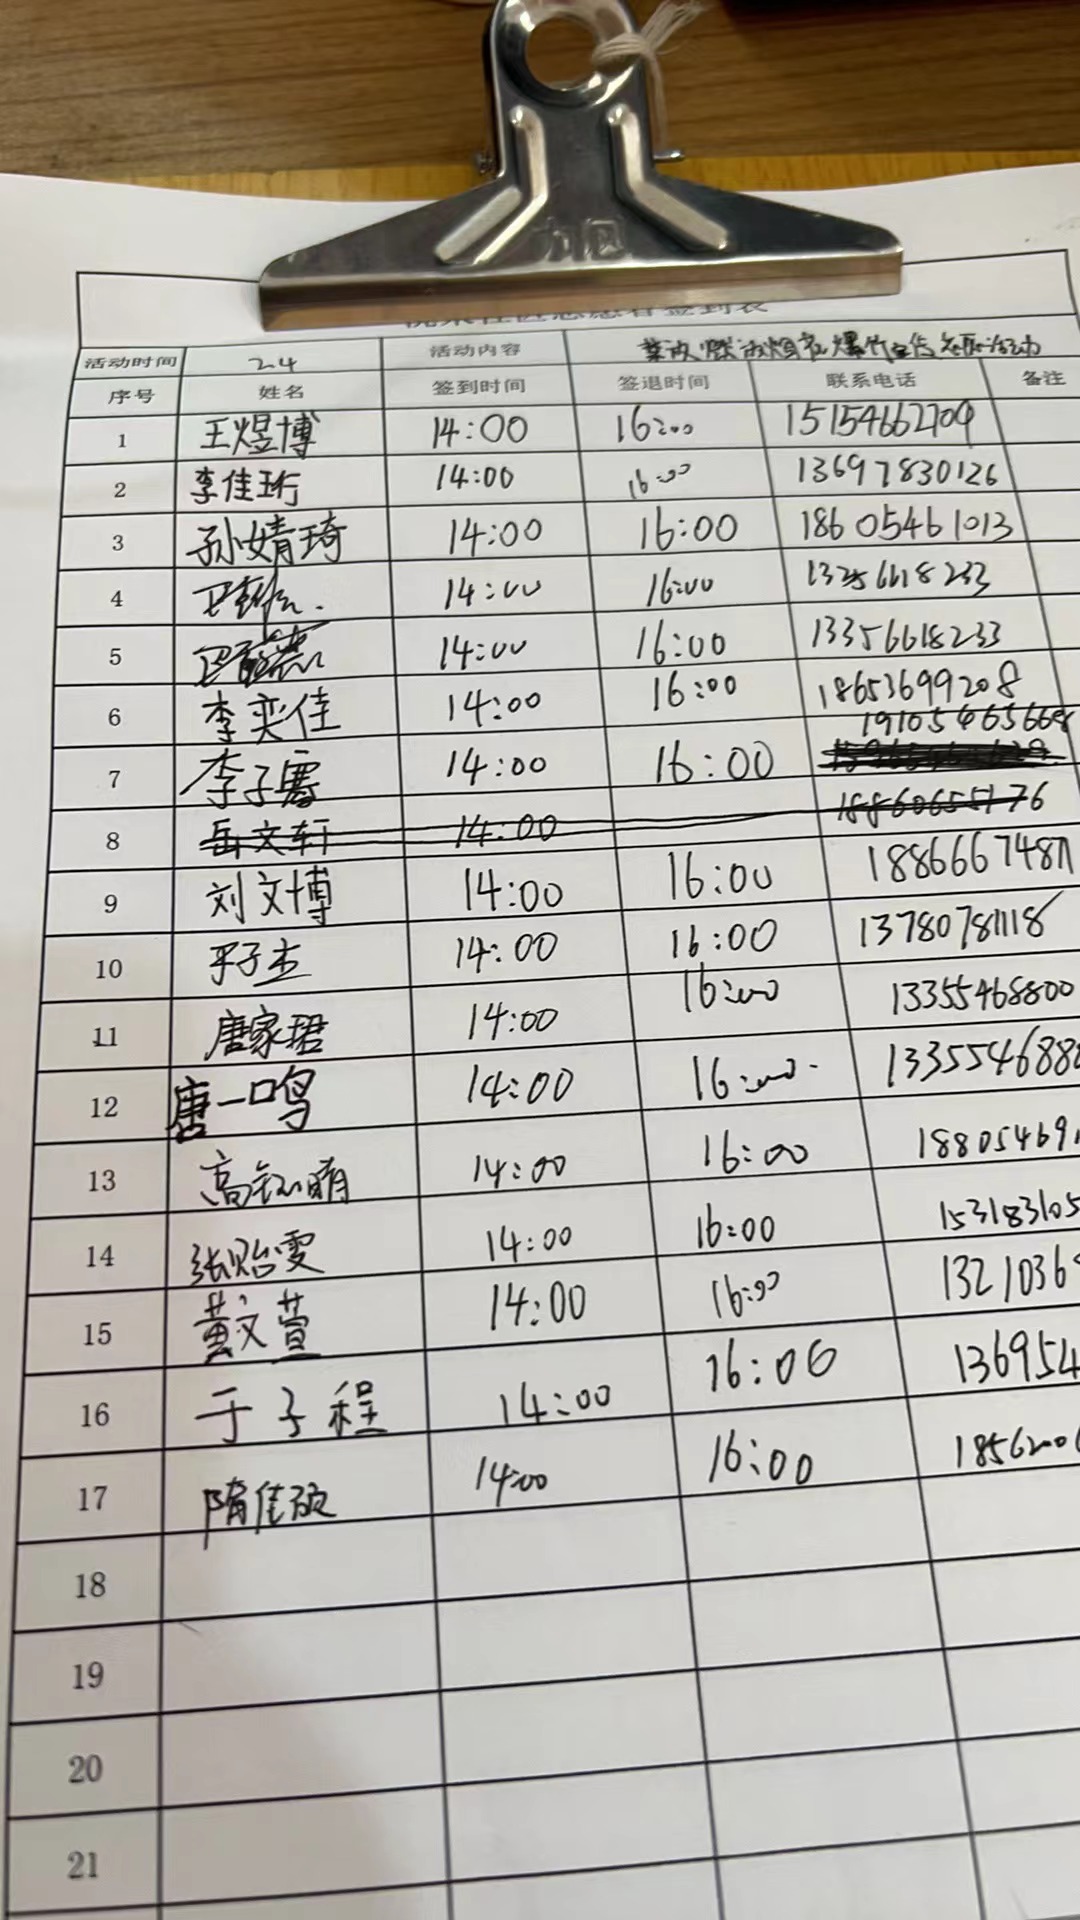 活动时间 2.4 活动内容 禁放燃放烟花爆竹宣传志愿活动
序号 姓名 签到时间 签退时间 联系电话 备注
1 王煜博 14:00 16:00 15154662709
2 李佳珩 14:00 16:00 13697830126
3 孙婧琦 14:00 16:00 18605461013
4 14:00 16:00 13356618233
5 14:00 16:00 13356618233
6 李奕佳 14:00 16:00 18653699208
7 李子骞 14:00 16:00 19105465668
8 岳文轩 14:00 18860655176
9 刘文博 14:00 16:00 18866674871
10 平子杰 14:00 16:00 13780781118
11 唐家珺 14:00 16:00 13355468800
12 唐一鸣 14:00 16:00 1335546880
13 高钰晴 14:00 16:00 188054691
14 张贻雯 14:00 16:00 153183105
15 黄文萱 14:00 16:00 1321036
16 于子程 14:00 16:00 136954
17 隋佳硕 14:00 16:00 1856200
18
19
20
21